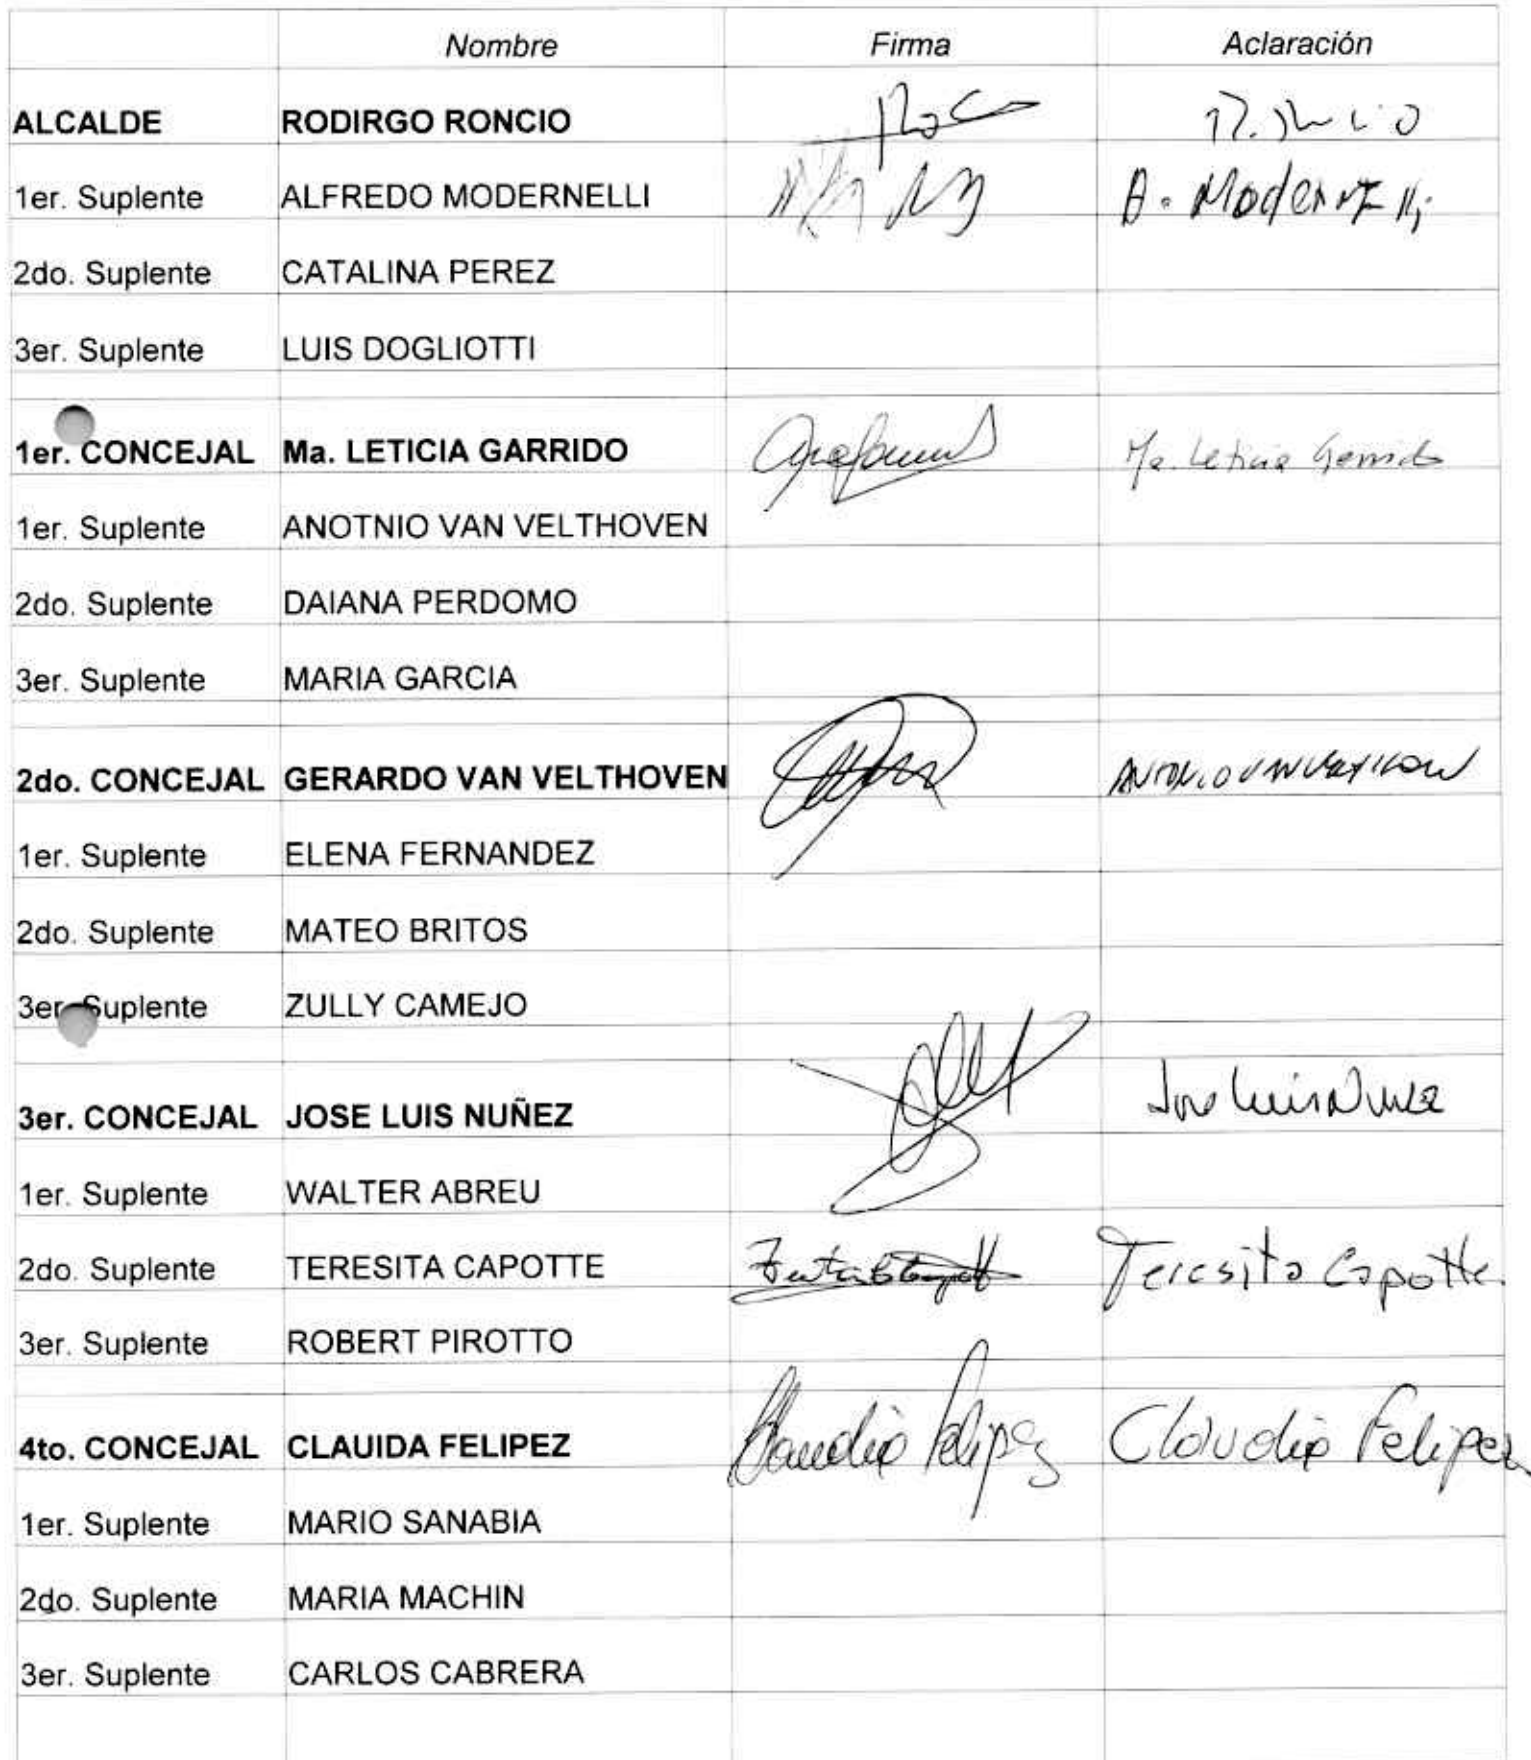 Nombre Firma Aclaración
ALCALDE RODIRGO RONCIO
1er. Suplente ALFREDO MODERNELLI A. Modernelli
2do. Suplente CATALINA PEREZ
3er. Suplente LUIS DOGLIOTTI
1er. CONCEJAL Ma. LETICIA GARRIDO Ma. Leticia Garrido
1er. Suplente ANOTNIO VAN VELTHOVEN
2do. Suplente DAIANA PERDOMO
3er. Suplente MARIA GARCIA
2do. CONCEJAL GERARDO VAN VELTHOVEN ANTONIO VAN VELTHOVEN
1er. Suplente ELENA FERNANDEZ
2do. Suplente MATEO BRITOS
3er. Suplente ZULLY CAMEJO
3er. CONCEJAL JOSE LUIS NUÑEZ Jose Luis Nuñez
1er. Suplente WALTER ABREU
2do. Suplente TERESITA CAPOTTE Teresita Capotte
3er. Suplente ROBERT PIROTTO
4to. CONCEJAL CLAUIDA FELIPEZ Claudia Felipez Claudia Felipez
1er. Suplente MARIO SANABIA
2do. Suplente MARIA MACHIN
3er. Suplente CARLOS CABRERA